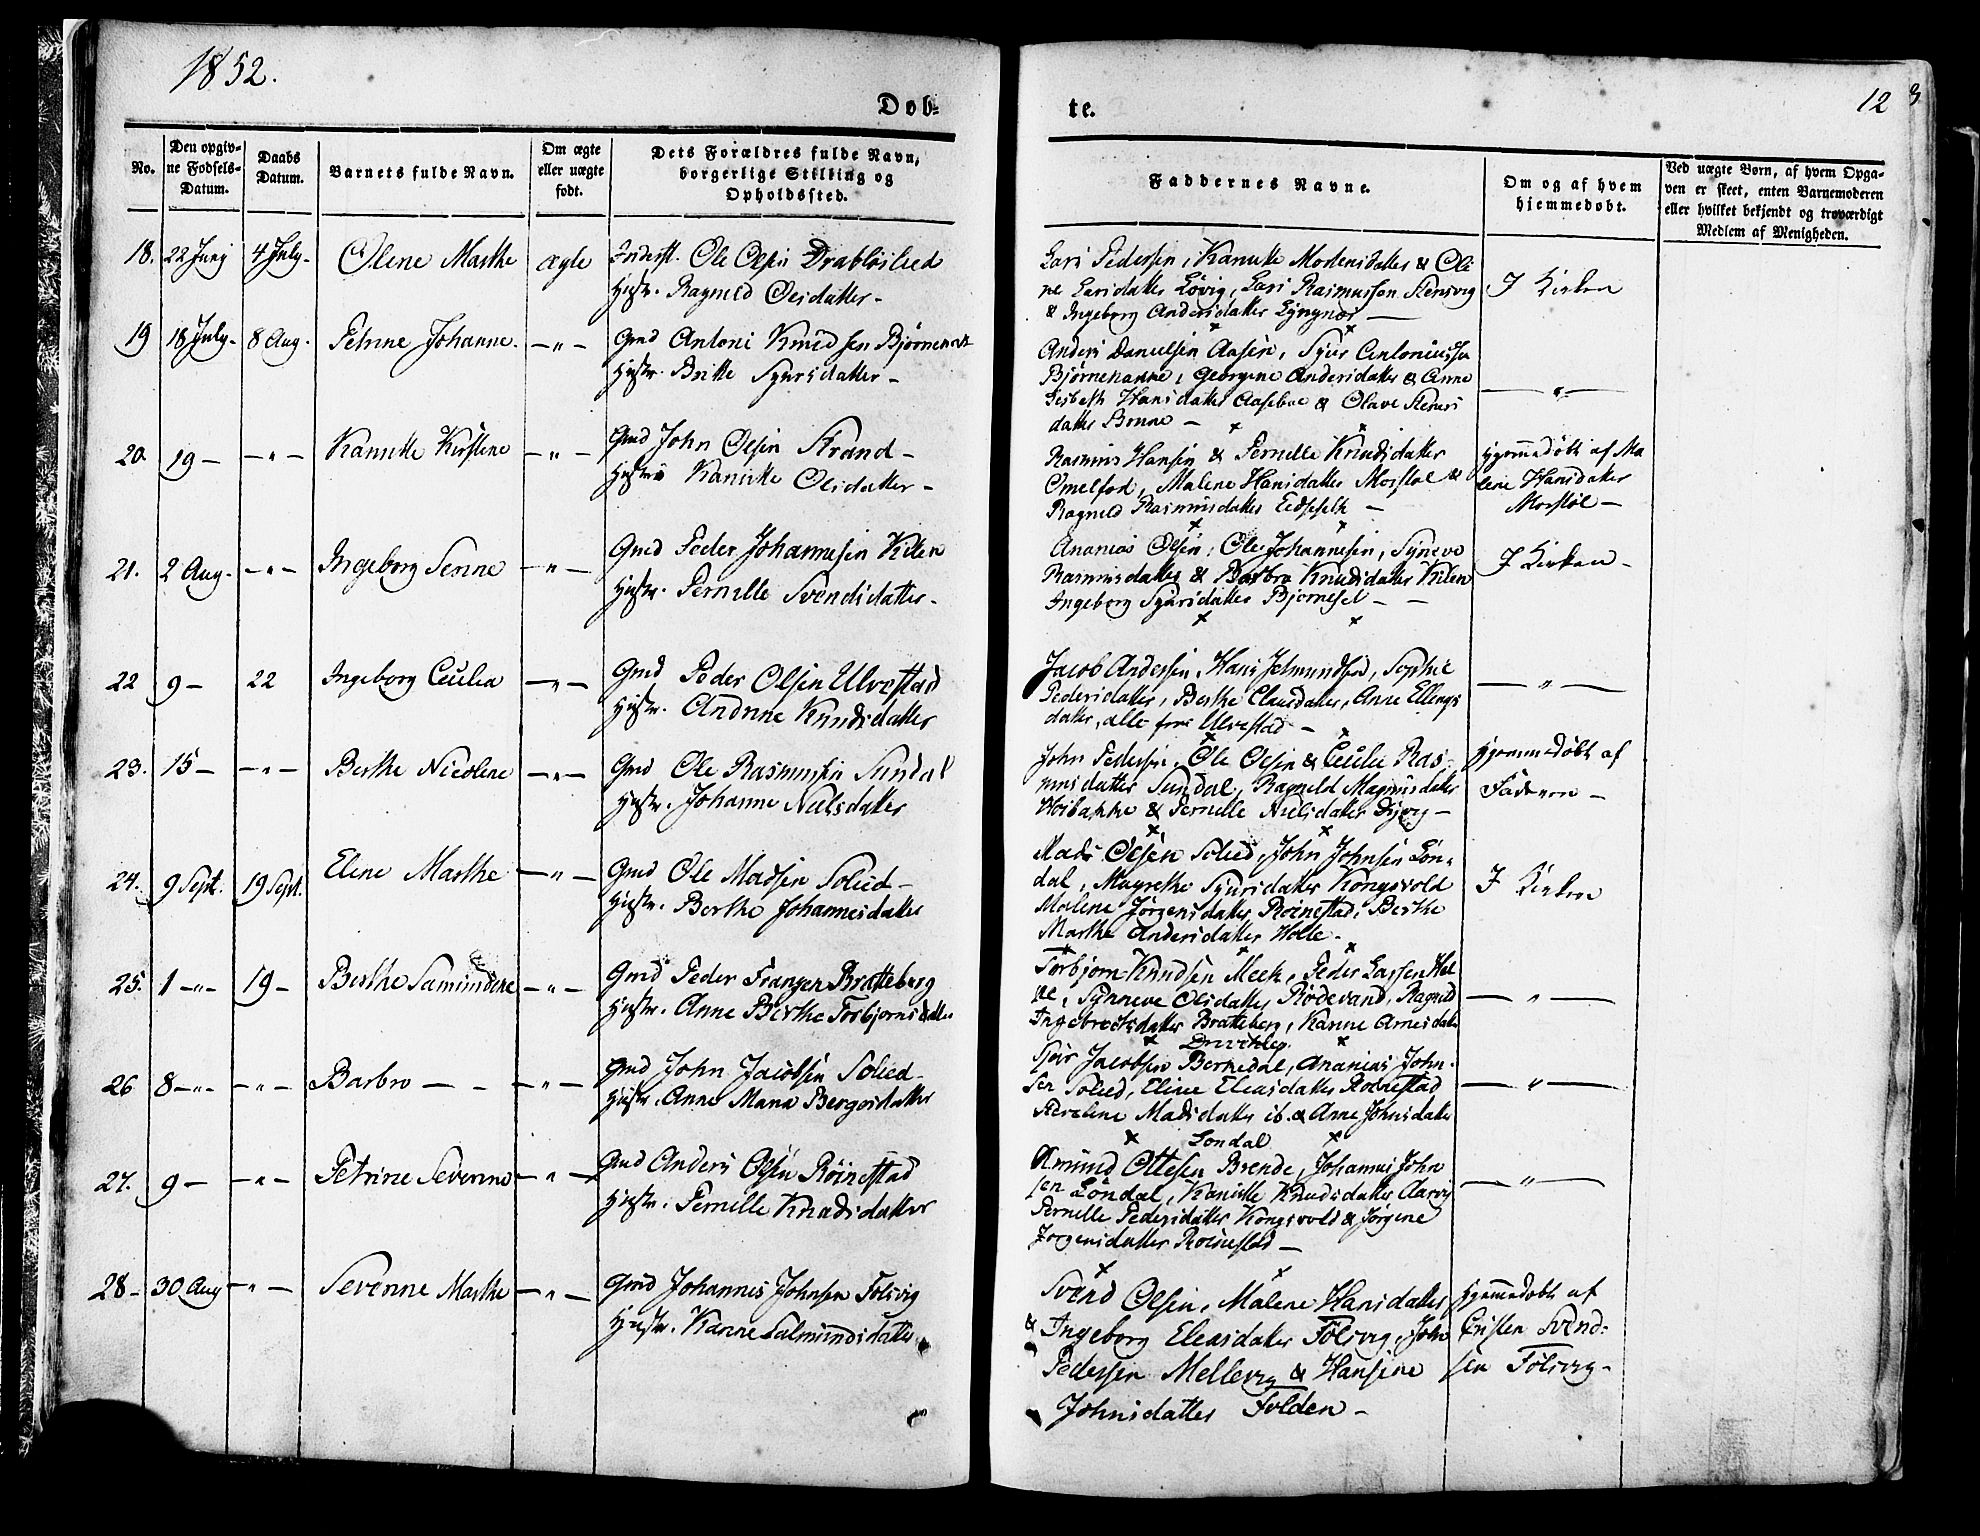 1852.
Døb-
te.
12
No.
Den opgiv-
ne Fødsels-
Datum.
Daabs
Datum.
Barnets fulde Navn.
Om ægte
eller uægte
født.
Dets Forældres fulde Navn,
borgerlige Stilling og
Opholdssted.
Faddernes Navne.
Om og af hvem
hjemmedøbt.
Ved uægte Børn, af hvem Opga-
ven er skeet, enten Barnemoderen
eller hvilket bekjendt og troværdigt
Medlem af Menigheden.
18. 22 Juny 4 July - Olene Marthe ægte Inderst. Ole Olsen Drabløslied
Hustr. Ragnild Olesdatter -
Lars Pedersen, Kanutte Mortensdatter & Oli
ne Larsdatter Løvig, Lars Rasmussen Stensvig
& Ingeborg Andersdatter Lyngnæs -
I Kirken
19 18 July - 8 Aug. Petrine Johanne. - " - Gmd Antoni Knudsen Bjørnenak
Hustr. Britte Sjursdatter -
Anders Danielsen Aasen, Sjur Antoniussen
Bjørnenakke, Georgine Andersdatter & Anne
Lisbeth Hansdatter Aasebøe & Olave Steners
datter Brune -
- " -
20. 19 - - " - Kanutte Kirstene - " - Gmd John Olsen Strand -
Hustru Kanutte Olsdatter -
Rasmus Hansen & Pernille Knudsdatter
Omelfod, Malene Hansdatter Morstøl &
Ragnild Rasmusdatter Eidseth -
Hjemmedøbt af Ma
lene Hansdatter
Morstøl -
21. 2 Aug. - " - Ingeborg Senne - " - Gmd Peder Johannesen Kilen
Hustr. Pernille Svendsdatter -
Ananias Olsen, Ole Johannesen, Syneve
Rasmusdatter & Barbro Knudsdatter Kilen
Ingeborg Sjursdatter Bjørneset - -
I Kirken -
22 9 - 22 Ingeborg Cecilia - " - Gmd Peder Olsen Ulvestad
Hustr. Andrine Knudsdatter
Jacob Andersen, Hans Jetmundsen, Sophie
Pedersdatter, Berthe Clausdatter, Anne Ellings
datter, alle fra Ulvestad -
- " -
23. 15 - - " - Berthe Nicoline - " - Gmd Ole Rasmussen Sundal
Hustr. Johanne Nielsdatter
John Pedersen, Ole Olsen & Cecilie Ras-
musdatter Sundal, Ragnild Magnusdatter
Høibakke & Pernille Nielsdatter Dijvig -
Hjemmedøbt af
Faderen -
24. 9 Sept. 19 Sept. Eline Marthe - " - Gmd Ole Madsen Solied -
Hustr. Berthe Johannesdatter
Mads Olsen Solied, John Johnsen Løn-
dal, Magrethe Sjursdatter Kongsvold
Malene Jørgensdatter Roinestad, Berthe
Marthe Andersdatter Holle -
I Kirken
25. 1 - " - 19 - Berthe Samundine - " - Gmd Peder Franzen Bratteberg
Hustr. Anne Berthe Torbjørnsdatter
Torbjørn Knudsen Meek, Peder Larsen Hol
ne, Synneve Olsdatter Rødevand, Ragnild
Ingebretsdatter Bratteberg, Hanne Arnesdatter
- " -
26 8 - " - - " - Barbro - - - " - Gmd John Jacobsen Solied -
Hustr. Anne Maria Bergosdatter
Sjur Jacobsen Bernedal, Ananias John-
sen Solied, Eline Eleasdatter Roinestad
Madsdatter ib. & Anne Johnsdatter
Løndal
- " -
27. 9 - - " - Petrine Severine - " - Gmd Anders Olsen Röinestad
Hustr. Pernille Knudsdatter
Amund Ottesen Brende, Johannes John
sen Løndal, Kanutte Knudsdatter Aarvig
Pernille Pedersdatter Kongsvold & Jørgine
Jørgensdatter Roinestad -
- " -
28 - 30 Aug - " - Severine Marthe - " - Gmd Johannes Johnsen Folsvig
Hustr. Hanne Salmundsdatter
Svend Olsen, Malene Hansdatter
& Ingeborg Eleasdatter Folsvig, John
Pedersen Mellevig & Hansine
Johnsdatter Folden -
Hjemmedøbt af
Cristen Svend-
sen Folsvig -